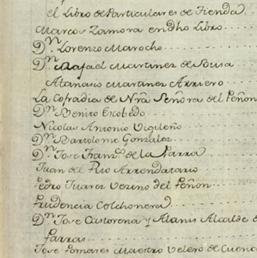 el Libro de Particulares de Tienda
Marcos Zamora en dho Libro
Dn. Lorenzo Marocho
Dn. Rafael Martines de Sousa
Atanacio Martines Arriero
La Cofradia de Nra Señora del Peñon
Dn. Benito Escobedo
Nicolas Antonio
Dn. Bartolome Gonzales
Dn. Jose Franco. de la Parra
Juan del Rio Arrendatario
Pedro Juares Vecino del Peñon
Prudencia Colchonera
Dn. Jose Castorena y Alanis Alcalde de
Parras
Jose Pomares Maestro Velero de Cuenca